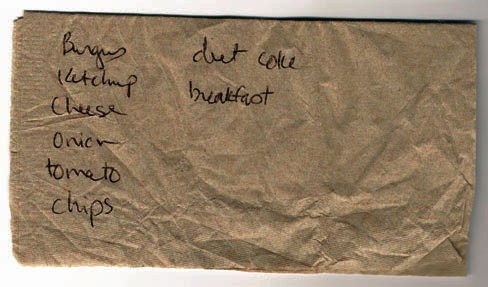 Burgers
Ketchup
Cheese
Onion
tomato
chips
diet coke
breakfast